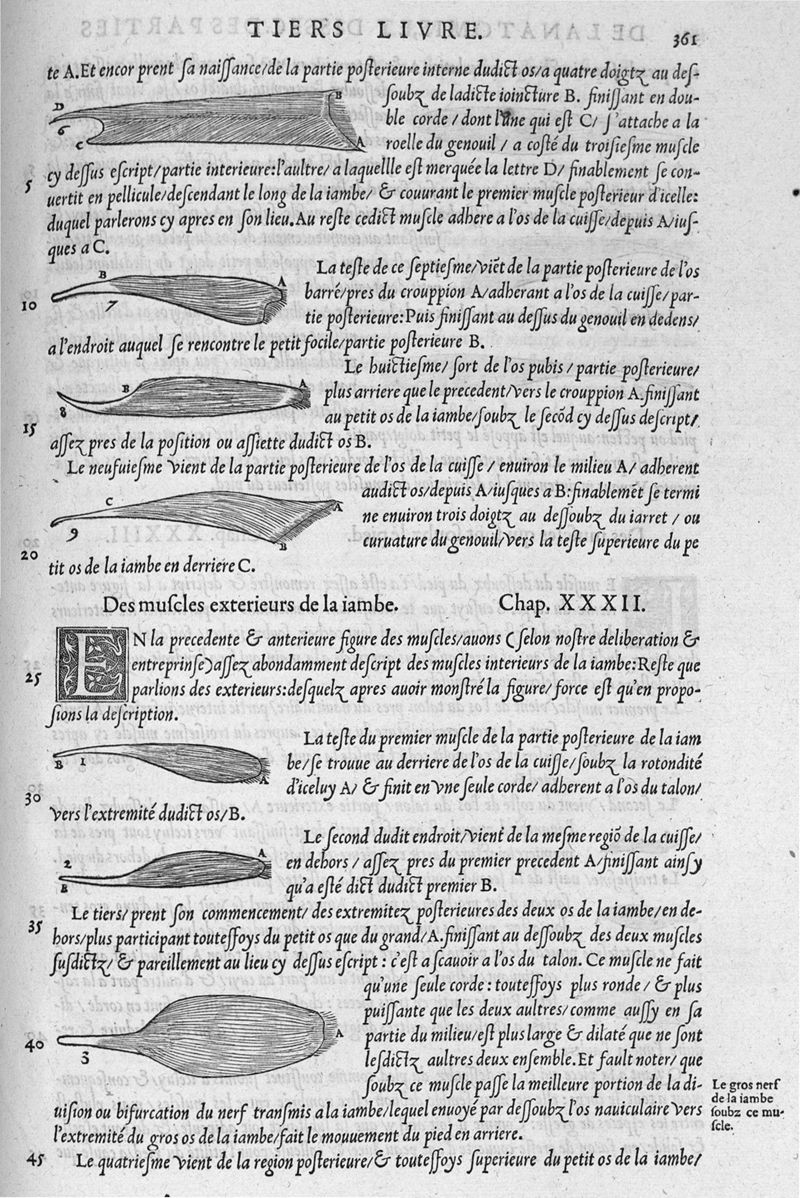 TIERS LIVRE.
361
te A. Et encor prent sa naissance/de la partie posterieure interne dudict os/a quatre doigtz au des-
soubz de ladicte ioincture B. finissant en dou-
ble corde / dont l'une qui est C/ s'attache a la
roelle du genouil / a costé du troisiesme muscle
cy dessus escript/partie interieure:l'aultre/ a laquellle est merquée la lettre D/ finablement se con-
uertit en pellicule/descendant le long de la iambe/ & couurant le premier muscle posterieur d'icelle:
duquel parlerons cy apres en son lieu. Au reste cedict muscle adhere a l'os de la cuisse/depuis A/ius-
ques a C.
La teste de ce septiesme/viēt de la partie posterieure de l'os
barré/pres du crouppion A/adherant a l'os de la cuisse/par-
tie posterieure:Puis finissant au dessus du genouil en dedens/
a l'endroit auquel se rencontre le petit focile/partie posterieure B.
Le huictiesme/ sort de l'os pubis / partie posterieure/
plus arriere que le precedent/vers le crouppion A. finissant
au petit os de la iambe/soubz le secōd cy dessus descript/
assez pres de la position ou assiette dudict os B.
Le neufuiesme vient de la partie posterieure de l'os de la cuisse / enuiron le milieu A/ adherent
audict os/depuis A/iusques a B:finablemēt se termi
ne enuiron trois doigtz au dessoubz du iarret / ou
curuature du genouil/vers la teste superieure du pe
tit os de la iambe en derriere C.
Des muscles exterieurs de la iambe. Chap. XXXII.
EN la precedente & anterieure figure des muscles/auons (selon nostre deliberation &
entreprinse) assez abondamment descript des muscles interieurs de la iambe:Reste que
parlions des exterieurs:desquelz apres auoir monstré la figure/force est qu'en propo-
sions la description.
La teste du premier muscle de la partie posterieure de la iam
be/se trouue au derriere de l'os de la cuisse/soubz la rotondité
d'iceluy A/ & finit en vne seule corde/ adherent a l'os du talon/
vers l'extremité dudict os/B.
Le second dudit endroit/vient de la mesme regiō de la cuisse/
en dehors / assez pres du premier precedent A/finissant ainsy
qu'a esté dict dudict premier B.
Le tiers/ prent son commencement/ des extremitez posterieures des deux os de la iambe/en de-
hors/plus participant toutesfoys du petit os que du grand/A. finissant au dessoubz des deux muscles
susdictz/ & pareillement au lieu cy dessus escript : c'est a scauoir a l'os du talon. Ce muscle ne fait
qu'une seule corde : toutesfoys plus ronde / & plus
puissante que les deux aultres/comme aussy en sa
partie du milieu/est plus large & dilaté que ne sont
lesdictz aultres deux ensemble. Et fault noter/ que
soubz ce muscle passe la meilleure portion de la di-
uision ou bifurcation du nerf transmis a la iambe/lequel enuoyé par dessoubz l'os nauiculaire vers
l'extremité du gros os de la iambe/fait le mouuement du pied en arriere.
Le quatriesme vient de la region posterieure/& toutesfoys superieure du petit os de la iambe/
Le gros nerf
de la iambe
soubz ce mu-
scle.
5
10
15
20
25
30
35
40
45
D
6
C
B
A
B
7
A
8
B
A
C
9
B
A
B
1
A
2
B
A
3
A